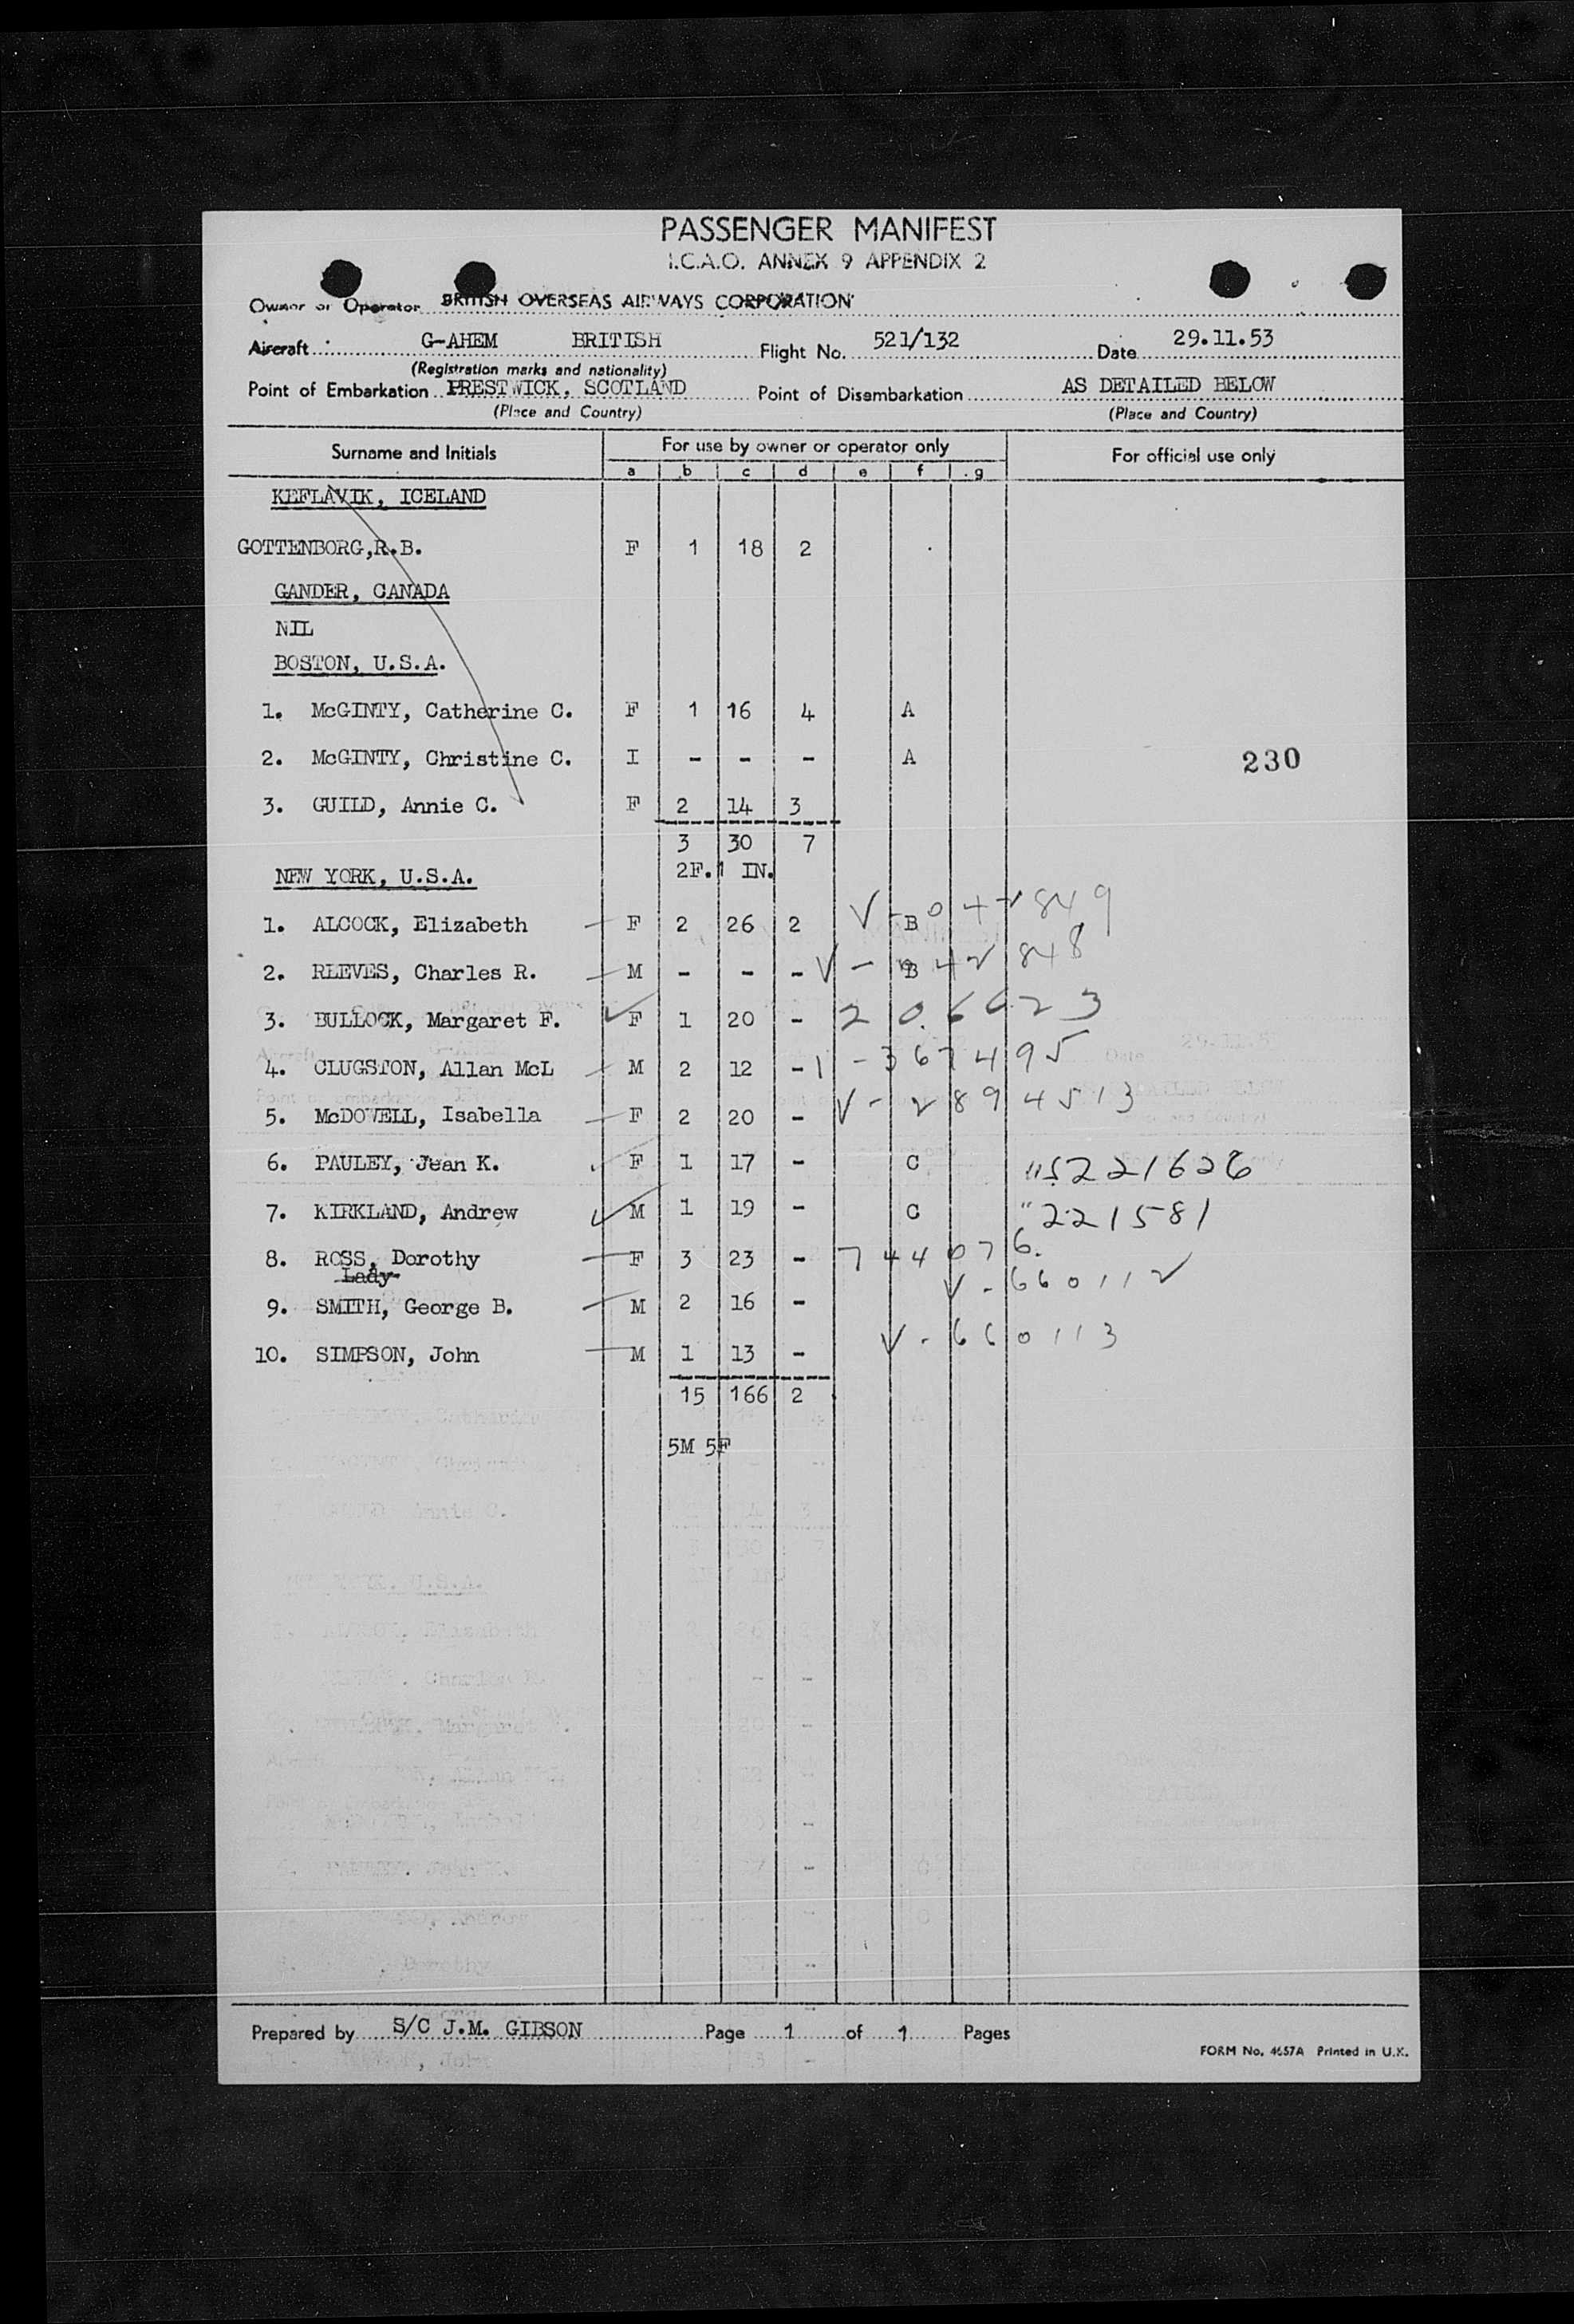 PASSENGER MANIFEST
I.C.A.O. ANNEX 9 APPENDIX 2
Owner or Operator BRITISH OVERSEAS AIRWAYS CORPORATION
Aircraft G-AHEM BRITISH Flight No. 521/132 Date 29.11.53
(Registration marks and nationality)
Point of Embarkation PRESTWICK, SCOTLAND Point of Disembarkation AS DETAILED BELOW
(Place and Country) (Place and Country)
Surname and Initials For use by owner or operator only For official use only
a b c d e f g
KEFLAVIK, ICELAND
GOTTENBORG,R.B. F 1 18 2
GANDER, CANADA
NIL
BOSTON, U.S.A.
1. McGINTY, Catherine C. F 1 16 4 A
2. McGINTY, Christine C. I - - - A
230
3. GUILD, Annie C. F 2 14 3
3 30 7
2F. 1 IN.
NEW YORK, U.S.A.
1. ALCOCK, Elizabeth F 2 26 2 B V-042849
2. REEVES, Charles R. M - - - B V-042848
3. BULLOCK, Margaret F. F 1 20 - 206623
4. CLUGSTON, Allan McL M 2 12 - 1-367495
5. McDOWELL, Isabella F 2 20 - V-2894513
6. PAULEY, Jean K. F 1 17 - C 221626
7. KIRKLAND, Andrew M 1 19 - C "221581
8. ROSS, Dorothy F 3 23 - 744076.
Lady
9. SMITH, George B. M 2 16 - V-660112
10. SIMPSON, John M 1 13 - V-660113
15 166 2
5M 5F
Prepared by S/C J.M. GIBSON Page 1 of 1 Pages
FORM No. 4657A Printed in U.K.